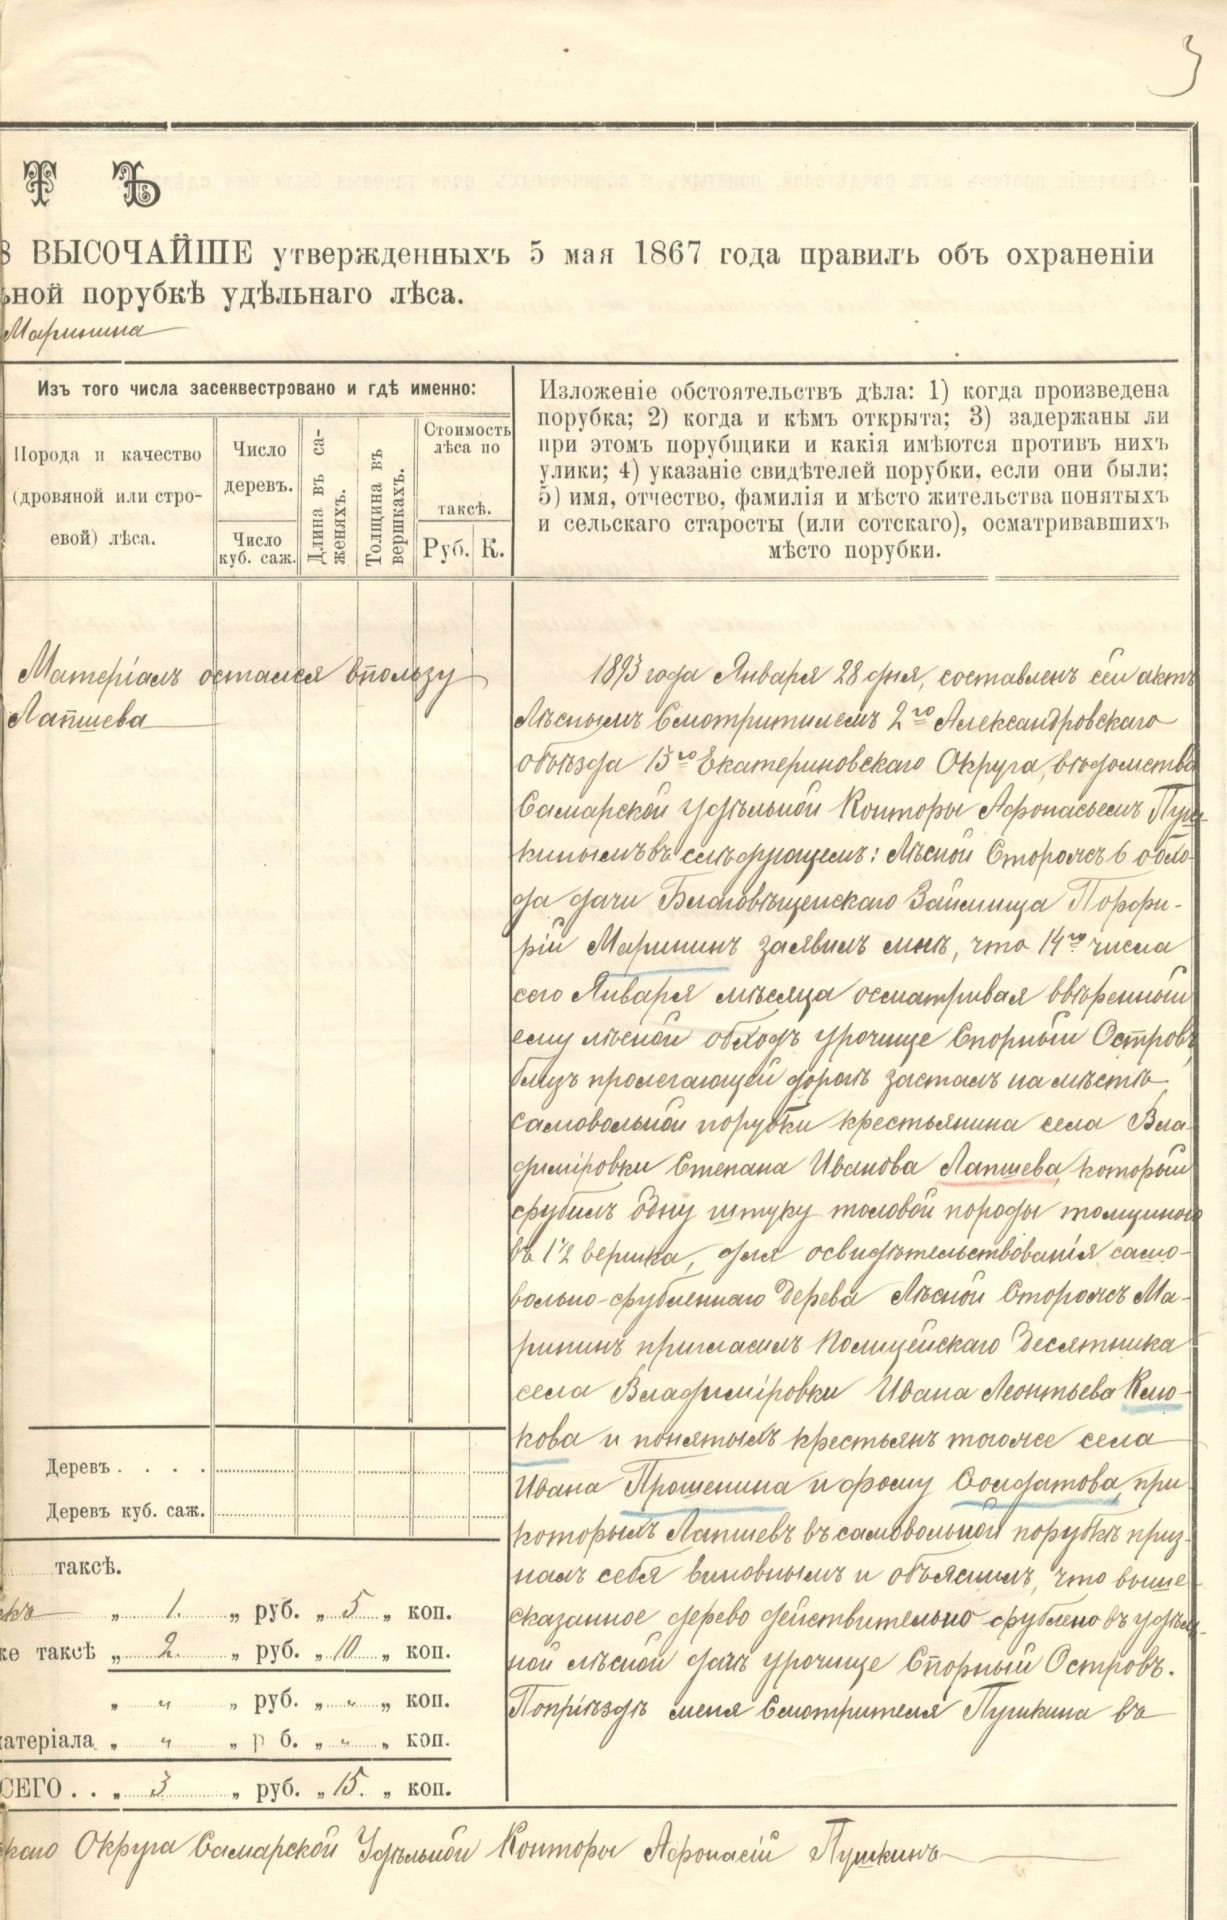 3
Т Ъ
8 ВЫСОЧАЙШЕ утвержденныхъ 5 мая 1867 года правилъ объ охраненіи
ьной порубкѣ удѣльнаго лѣса.
Маринина
Изъ того числа засеквестровано и гдѣ именно:
Порода и качество
(дровяной или стро-
евой) лѣса.
Число
деревъ.
Число
куб. саж.
Длина въ са-
женяхъ.
Толщина въ
вершкахъ.
Стоимость
лѣса по
таксѣ.
Руб. К.
Изложеніе обстоятельствъ дѣла: 1) когда произведена
порубка; 2) когда и кѣмъ открыта; 3) задержаны ли
при этомъ порубщики и какія имѣются противъ нихъ
улики; 4) указаніе свидѣтелей порубки, если они были;
5) имя, отчество, фамилія и мѣсто жительства понятыхъ
и сельскаго старосты (или сотскаго), осматривавшихъ
мѣсто порубки.
Матеріалъ остался впользу
Лапшева
1893 года Января 28 дня, составленъ сей актъ
Лѣснымъ Смотрителемъ 2го Александровскаго
объѣзда 13го Екатериновскаго Округа, вѣдомства
Самарской Удѣльной Конторы Афонасьемъ Пуш-
кинымъ въ слѣдующемъ: Лѣсной Сторожъ 6 обхо-
да дачи Благовѣщенскаго Займища Порфи-
рій Марининъ заявилъ мнѣ, что 14го числа
сего Января мѣсяца осматривая ввѣренный
ему лѣсной обходъ урочище Спорный Островъ,
близъ пролегающей дорогѣ засталъ на мѣстѣ
самовольной порубки крестьянина села Вла-
диміровки Степана Иванова Лапшева, который
срубилъ одну штуку таловой породы толщиною
въ 1½ вершка, для освидѣтельствованія само-
вольно-срубленнаго дерева Лѣсной Сторожъ Ма-
рининъ пригласилъ Полицейскаго Десятника
села Владиміровки Ивана Леонтьева Клю-
кова и понятыхъ крестьянъ тогоже села
Ивана Прошенина и Фому Солдатова, при
которыхъ Лапшевъ въ самовольной порубкѣ приз-
налъ себя виновнымъ и объяснилъ, что выше-
сказанное дерево действительно срублено въ удѣль-
ной лѣсной дачѣ урочище Спорный Островъ.
Попріѣздѣ меня Смотрителя Пушкина въ
Деревъ . . . .
Деревъ куб. саж.
таксѣ.
„ 1. „ руб. „ 5 „ коп.
же таксѣ „ 2. „ руб. „ 10 „ коп.
„ „ „ руб. „ „ „ коп.
матеріала „ „ „ р б. „ „ „ коп.
СЕГО . . „ 3 „ руб. „ 15. „ коп.
скаго Округа Самарской Удѣльной Конторы Афонасій Пушкинъ